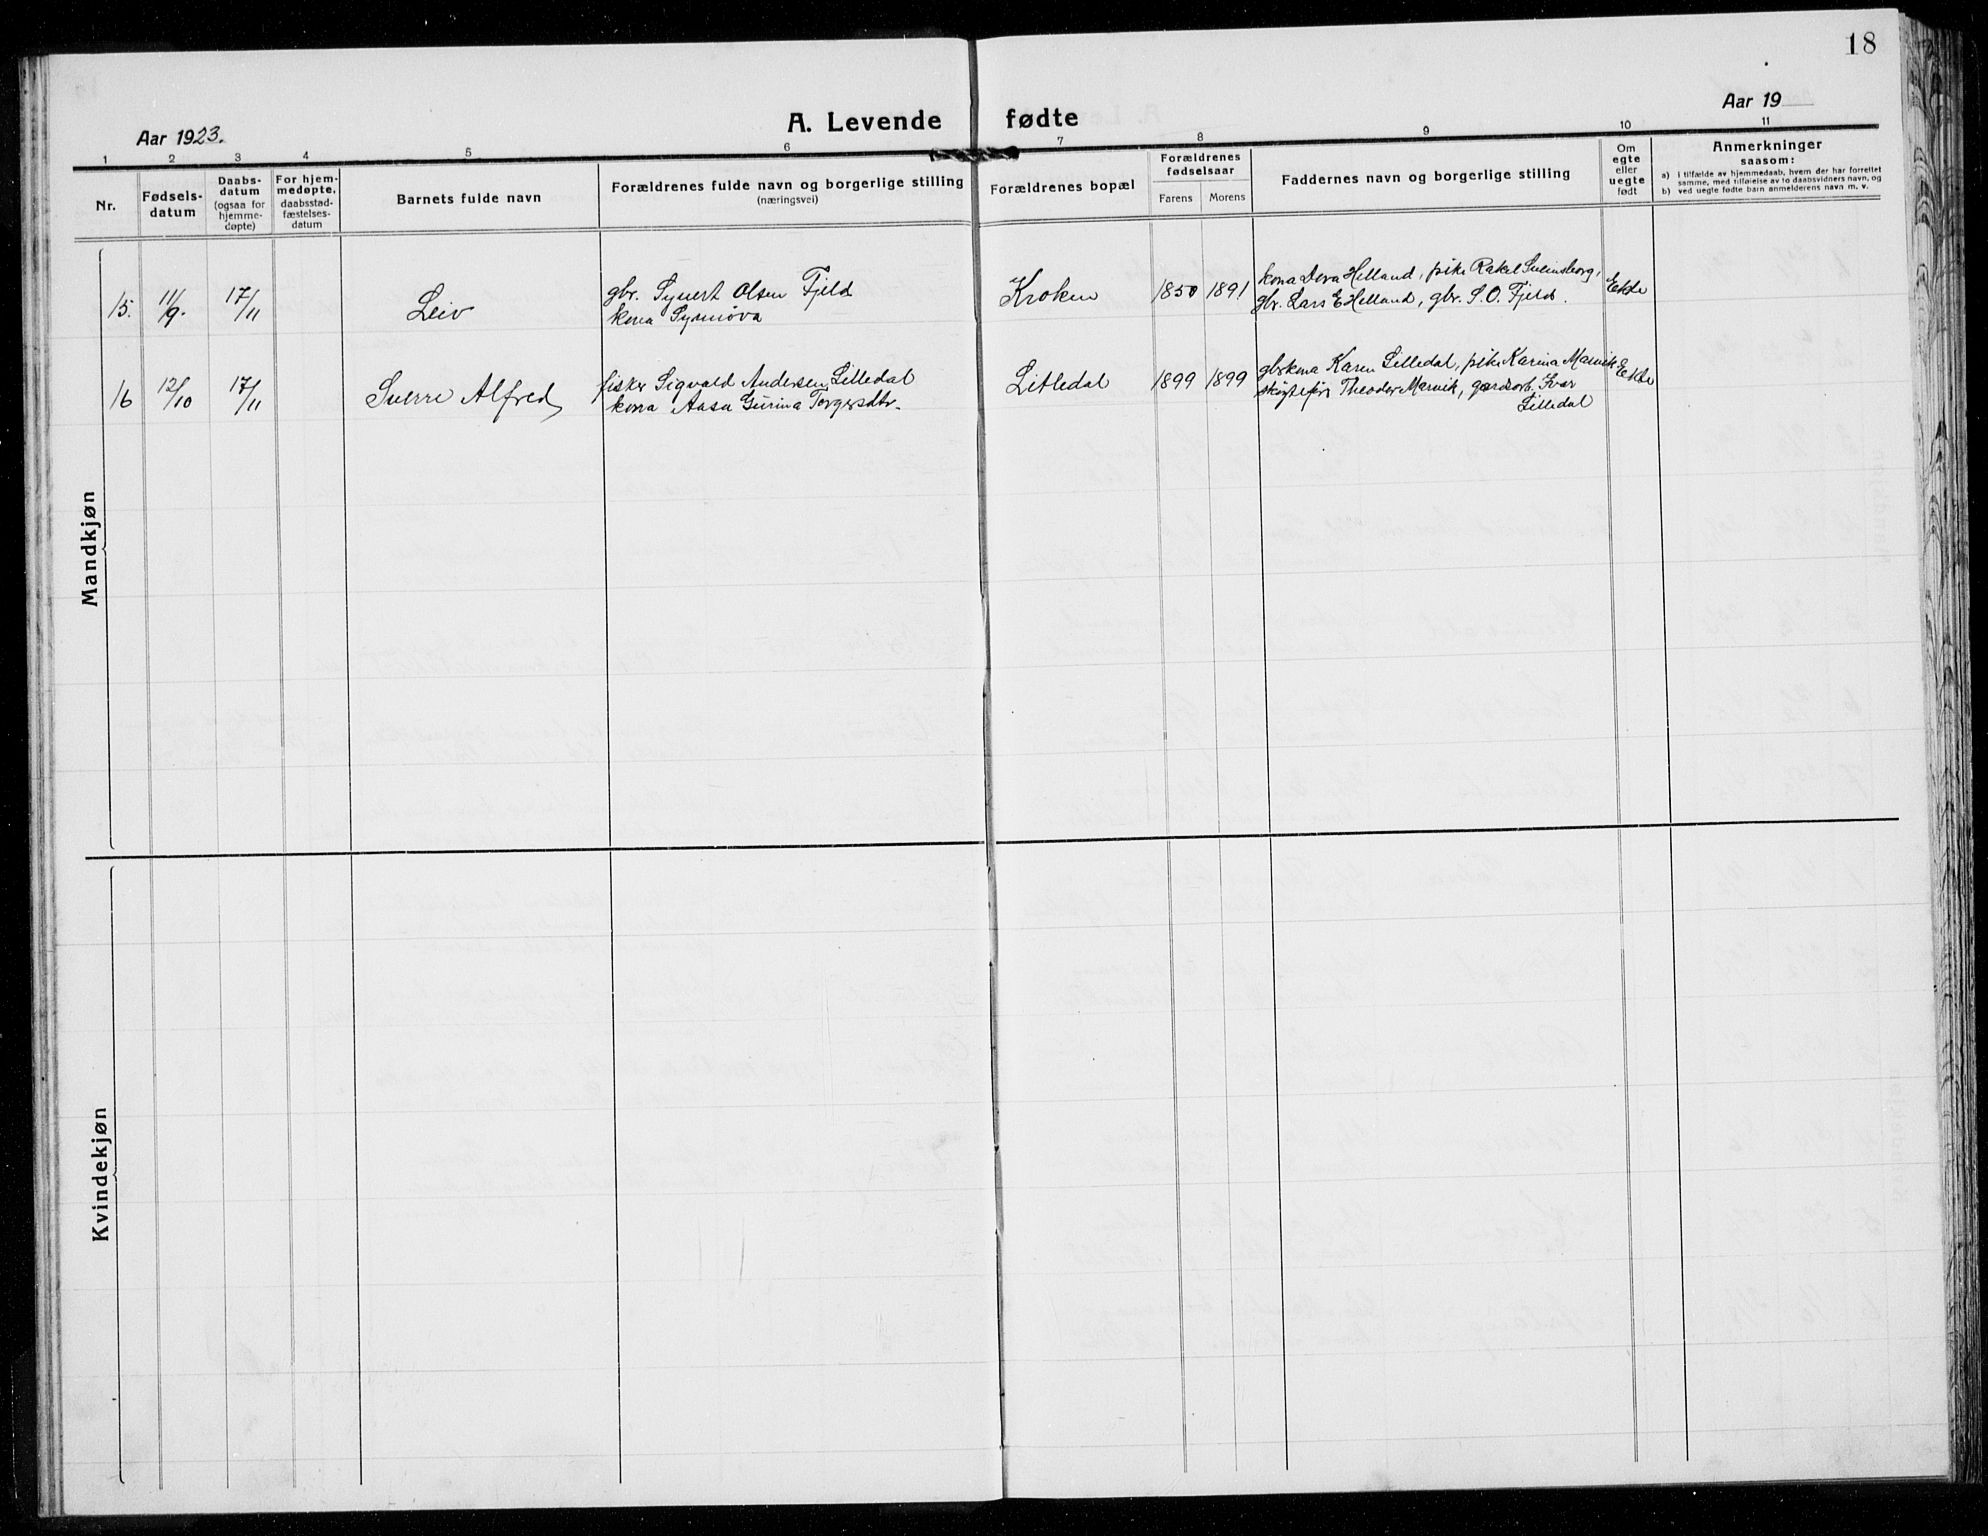 18
Aar 1923.
A. Levende fødte
Aar 19
1 2 3 4 5 6 7 8 9 10 11
Nr.
Fødsels-
datum
Daabs-
datum
(ogsaa for
hjemme-
døpte)
For hjem-
medøpte,
daabsstad-
fæstelses-
datum
Barnets fulde navn
Forældrenes fulde navn og borgerlige stilling
(næringsvei)
Forældrenes bopæl
Forældrenes
fødselsaar
Farens Morens
Faddernes navn og borgerlige stilling
Om
egte
eller
uegte
født
Anmerkninger
saasom:
a) i tilfælde av hjemmedaab, hvem der har forrettet
samme, med tilføielse av to daabsvidners navn, og
b) ved uegte fødte barn anmelderens navn m. v.
Mandkjøn
15. 11/9. 17/11 Leiv
gbr. Syvert Olsen Fjeld
kona Synnøva
Kroken 1850 1891
kona Dora Helland, pike Rakel Sveinsborg,
gbr. Lars E Helland, gbr. S. O. Fjeld.
Ekte
16 12/10 17/11 Sverre Alfred
fisker Sigvald Andersen Litledal
kona Aasa Gurina Torgersdtr.
Litledal 1899 1899
gbrkona Karen Lilledal, pike Karina Marvik
Theodor Marvik, gardsarb. Ivar
Lilledal
Ekte
Kvindekjøn